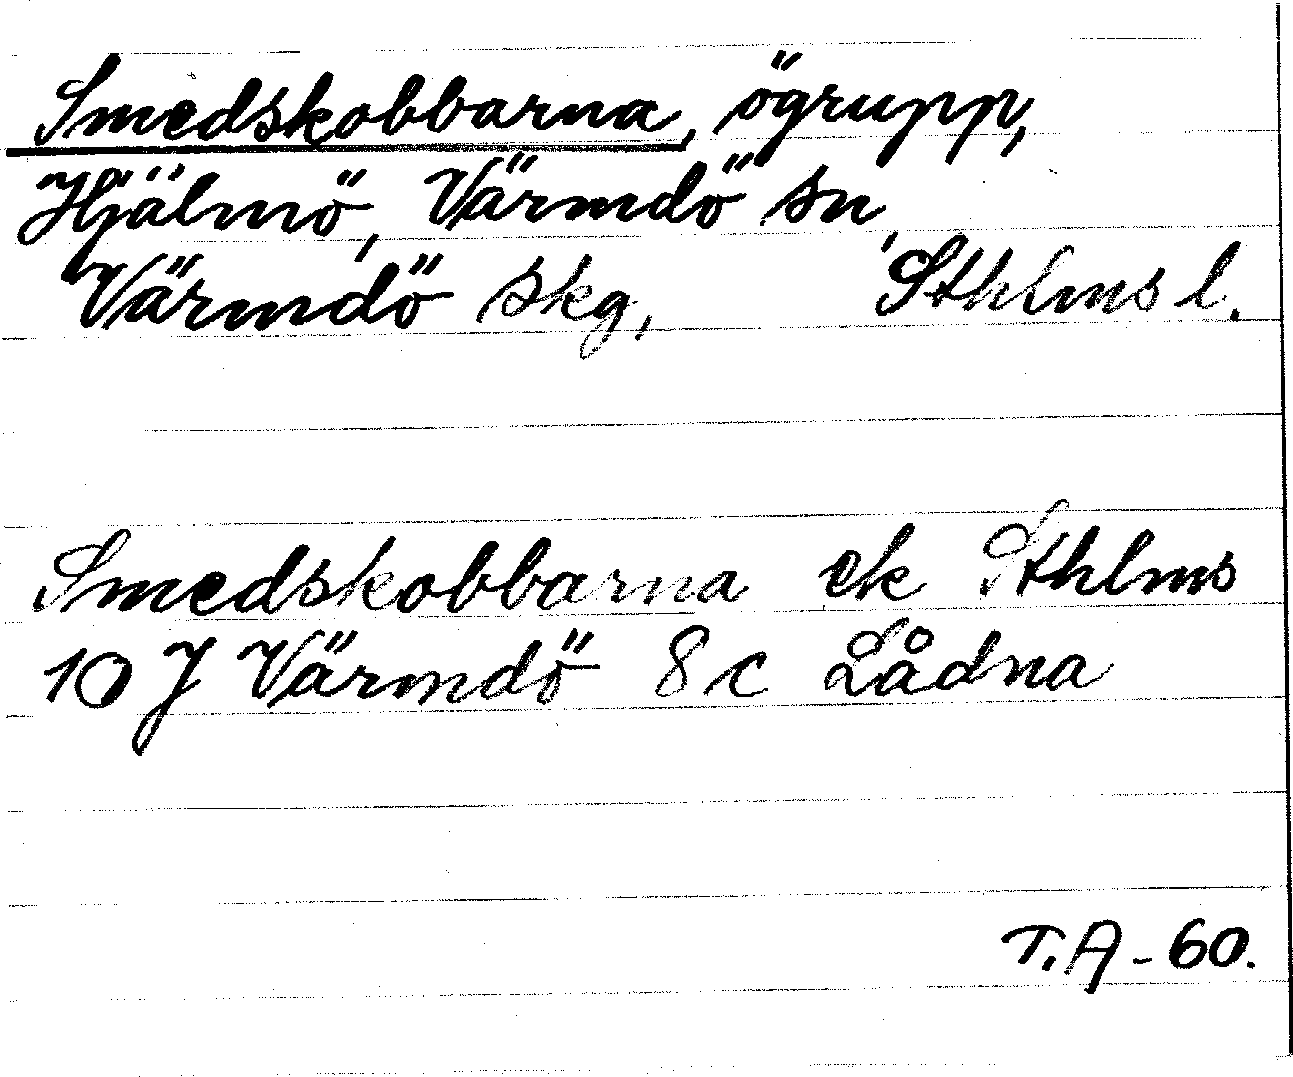 Smedskobbarna, ögrupp,
Hjälmö, Värmdö sn,
Värmdö skg, Sthlms l.
Smedskobbarna ek Sthlms
10 J Värmdö 8 c Lådna
T.A - 60.